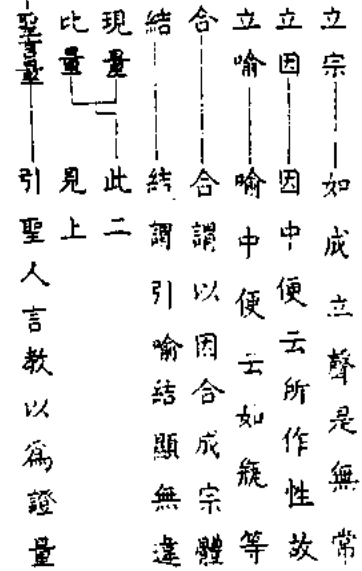 立宗——如成立聲是無常
立因——因中便云所作性故
立喻——喻中便云如瓶等
合——合謂以因合成宗體
結——結謂引喻結顯無違
現量——此二
比量——見上
聖言量——引聖人言教以為證量